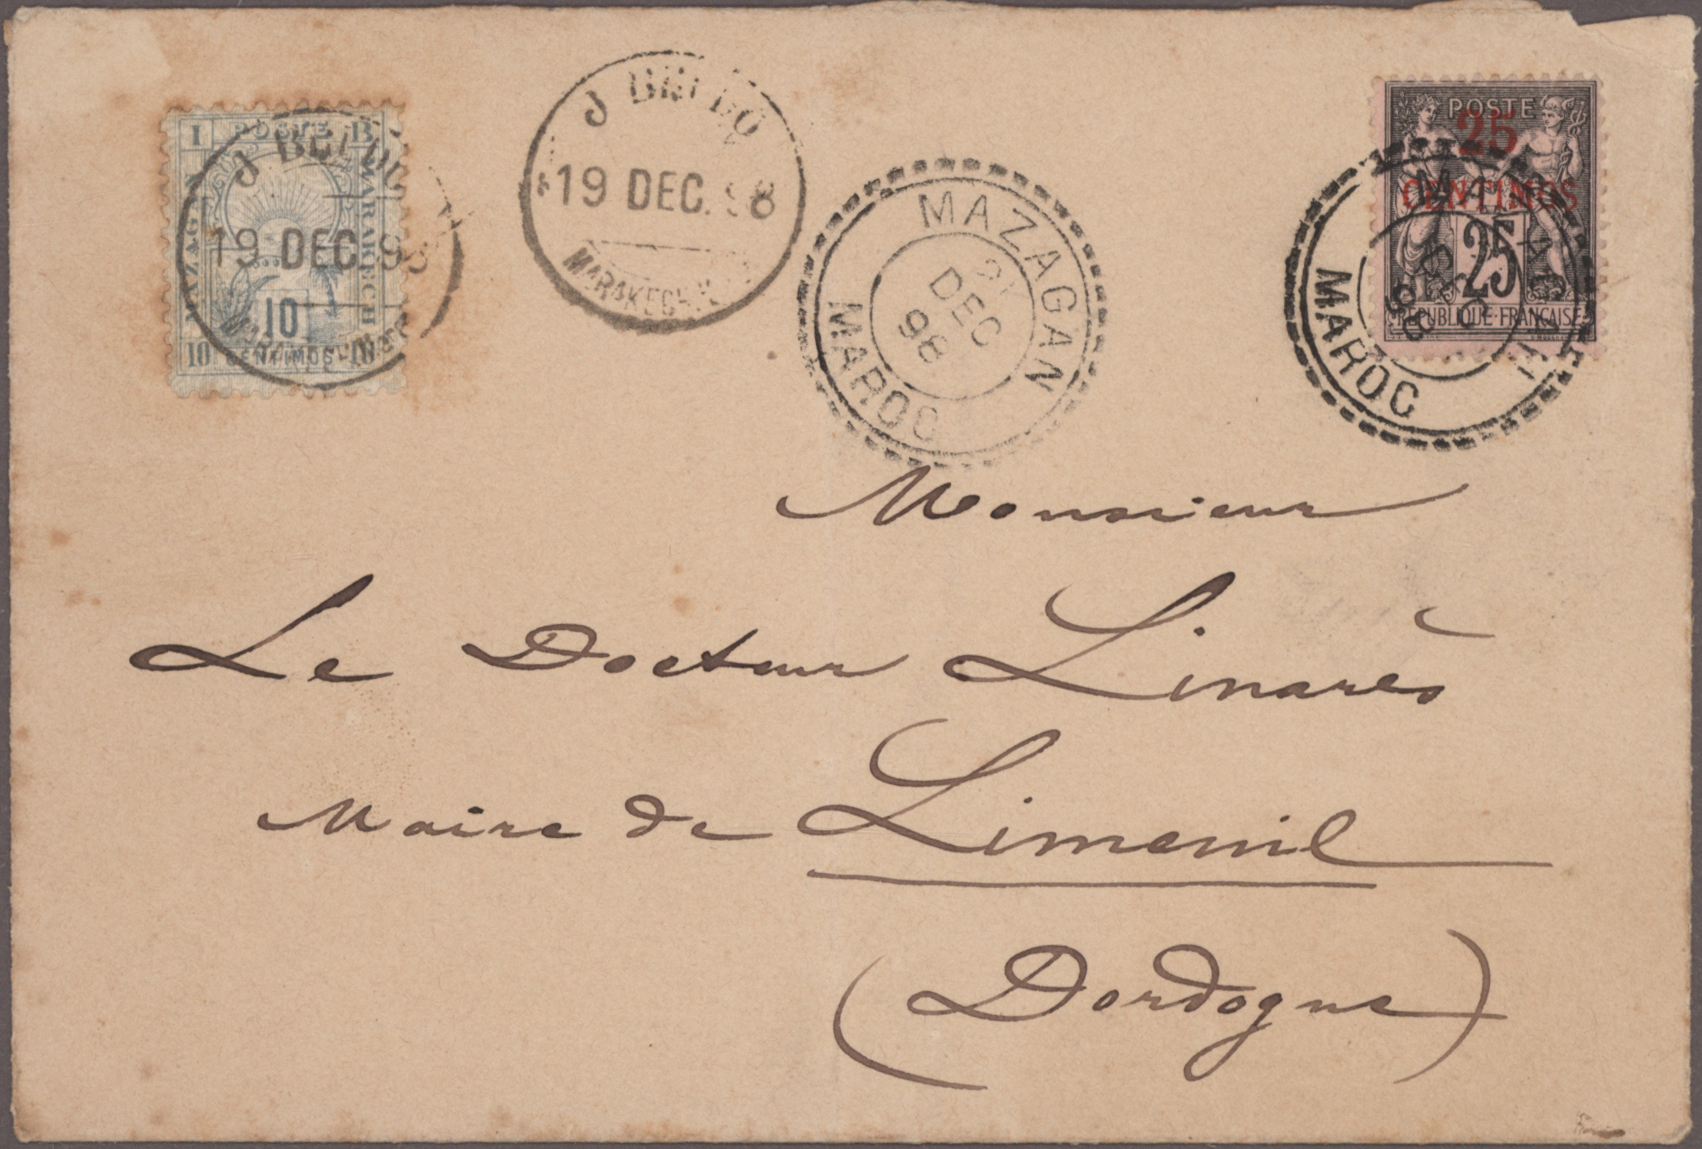 I POSTE B
MAZAGAN
MARAKECH
10
10 CENTIMOS 10
J BELDO
19 DEC. 98
J BELDO
19 DEC. 98
MARAKECH
MAZAGAN
DEC
98
MAROC
POSTE
25
CENTIMOS
25
REPUBLIQUE FRANÇAISE
DEC
98
MAROC
Monsieur
Le Docteur Linarès
Maire de Limeuil
(Dordogne)